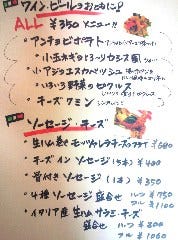 ワイン・ビールのおともに!!
ALL ¥350 メニュー!!
・アンチョビポテト
・小玉ネギとドライカシス
・小アジのエスカベッシュ
・いろいろ野菜のピクルス
・チーズクミン
ソーセージ・チーズ
・生ハムとモッツァレラチーズのフライ ¥680
・チーズインソーセージ(5本) ¥400
・骨付きソーセージ(1本) ¥350
・4種ソーセージ盛合せ ハーフ ¥750
フル ¥1100
・イタリア産生ハムサラミチーズ
盛合せ ハーフ ¥800
フル ¥1060